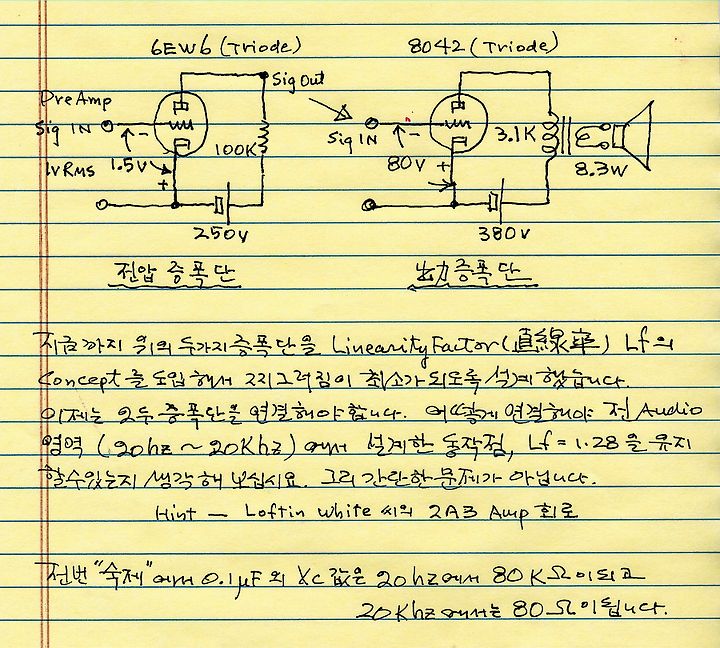 6EW6 (Triode)
8042 (Triode)
Sig Out
PreAmp
Sig IN
1vRms
1.5V
-
+
100K
250V
Sig IN
-
80V
+
3.1K
8.3W
380V
전압 증폭단
出力 증폭단
지금까지 위의 두가지 증폭단을 Linearity Factor (直線率) Lf의
Concept를 도입해서 찌그러짐이 최소가 되도록 설계 했습니다.
이제는 2두 증폭단을 연결해야 합니다. 어떻게 연결해야 전 Audio
영역 (20hz ~ 20Khz) 에서 설계한 동작점, Lf = 1.28 을 유지
할수있는지 생각해 보십시요. 그리 간단한 문제가 아닙니다.
Hint — Loftin White 씨의 2A3 Amp 회로
전번 "숙제" 에서 0.1μF 의 Xc 값은 20hz에서 80KΩ이되고
20Khz 에서는 80Ω이됩니다.